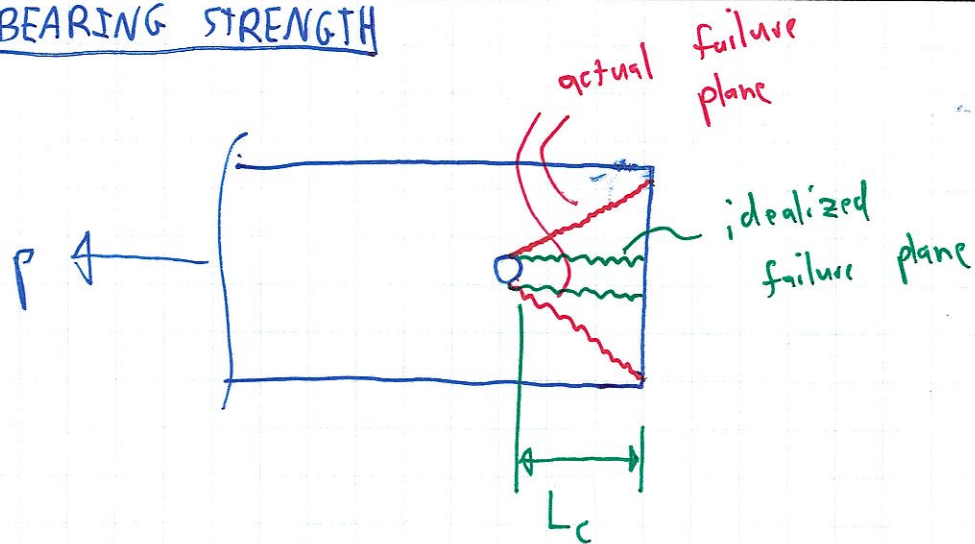 BEARING STRENGTH
actual failure
plane
idealized
failure plane
P
Lc